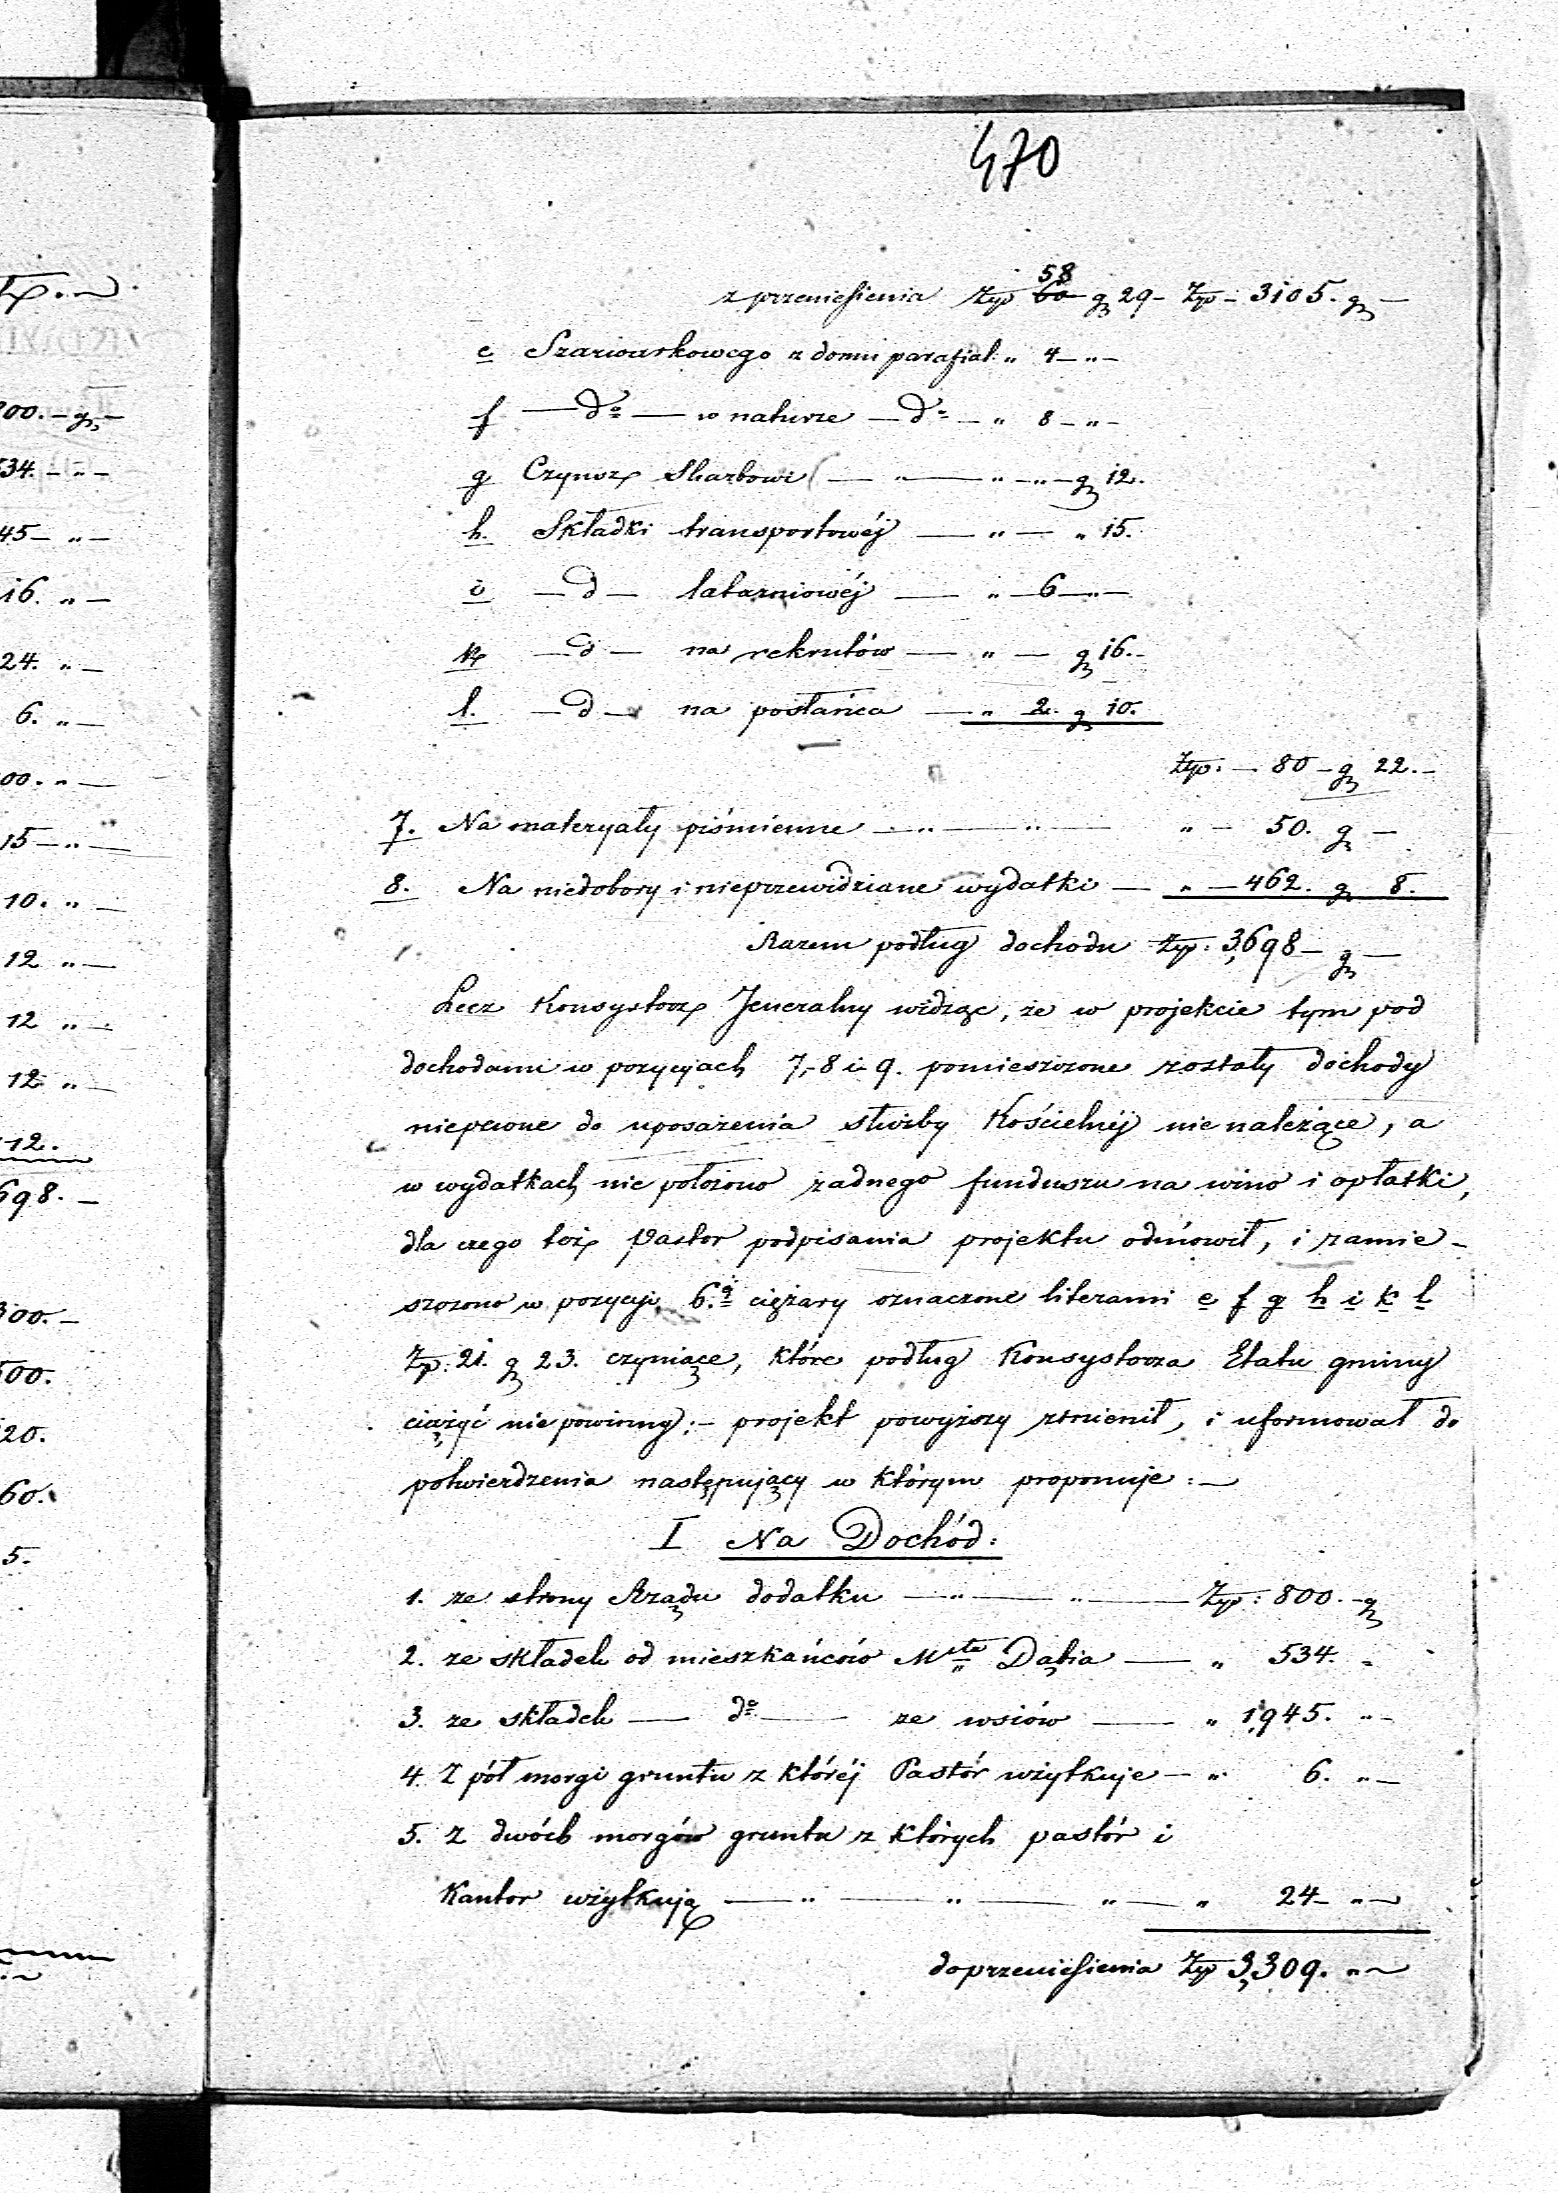 470
z przeniesienia Złp 58 60 gr 29 - Złp - 3105. gr -
e Szarwarkowego z domu parafial: " 4 - " -
f — do — w naturze — do - " 8 - " -
g Czynsz Skarbowi — " — " - " - gr 12.
h. Składki transportowéj — " — " 15.
i — d — latarniowéj — " — 6 — " —
k — d — na rekrutów — " — gr 16. -
l. — d — na posłańca — " 2. gr 10.
Złp: — 80 - gr 22. -
7. Na materyały piśmienne — " — " — " — 50. gr —
8. Na niedobory i nieprzewidziane wydatki — " — 462. gr 8.
Razem podług dochodu Złp: 3,698 - gr —
Lecz Konsystorz Jeneralny widząc, że w projekcie tym pod
dochodami w pozycyjach 7, - 8 i 9. pomieszczone zostały dochody
niepewne do uposażenia służby Kościelnéj nie należące, a
w wydatkach nie położono żadnego funduszu na wino i opłatki,
dla czego téż Pastor podpisania projektu odmówił, i zamie-
szczono w pozycyi 6.éj ciężary oznaczone literami e f g h i k l
Złp: 21. gr 23. czyniące, które podług Konsystorza Etatu gminy
ciążyć nie powinny: - projekt powyższy zmienił, i uformował do
potwierdzenia następujący w którym proponuje: —
I Na Dochód:
1. ze strony Rządu dodatku — " — " — Złp: 800. - gr
2. ze składek od mieszkańców Msta Dąbia — " 534. -
3. ze składek — do — ze wsiów — " 1,945. " -
4. Z pół morgi gruntu z któréj Pastór użytkuje — " 6. " —
5. Z dwóch morgów gruntu z których pastór i
Kantor użytkują — " — " — " — " 24 - " —
do przeniesienia Złp 3,309. " —
łp. —
800. - gr -
534. - " -
45 — " —
16. " —
24. " —
6. " —
00. " —
15 — " —
10. " —
12 " —
12 " —
12 " —
12.
698. —
300. —
500.
20.
60.
5.